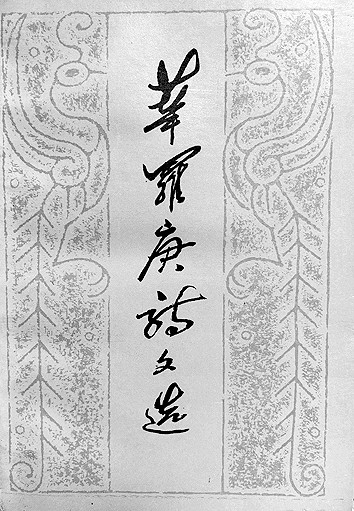 華羅庚詩文选